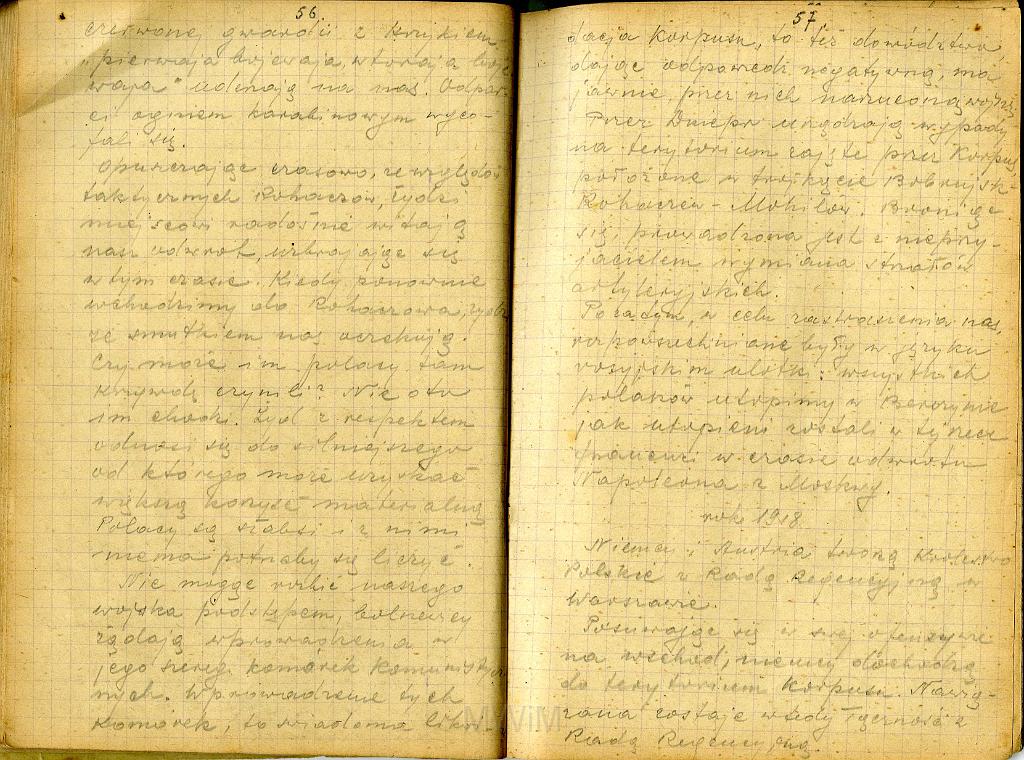 56.
czerwonej gwardii z krzykiem
"pierwaja bojewaja, wtoraja boje
waja" uderzają na nas. Odpar-
ci ogniem karabinowym wyco-
fali się.
Opuszczając czasowo, ze względów
taktycznych Rohaczów, żydzi
miejscowi radośnie witają
nasz odwrót, uzbrajając się
w tym czasie. Kiedy ponownie
wchodzimy do Rohaczowa, żydzi
ze smutkiem nas oczekują.
Czy może im polacy tam
krzywdę czynili? Nie o to
im chodzi. Żyd z respektem
odnosi się do silniejszego
od którego może uzyskać
większą korzyść materialną
Polacy są słabsi i z nimi
niema potrzeby się liczyć.
Nie mogąc rozbić naszego
wojska podstępem, bolszewicy
żądają wprowadzenia w
jego szereg. komórek komunistycz
nych. Wprowadzenie tych
komórek, to wiadoma likwi
57.
dacja Korpusu, to też dowództwo
dając odpowiedź negatywną, ma
jawnie, przez nich narzuconą wojnę.
Przez Dniepr urządzają wypady
na terytorium zajęte przez Korpus,
położone w trójkącie Bobrujsk-
Rohaczew - Mohilów. Broniąc
się, prowadzona jest z nieprzy-
jacielem wymiana strzałów
artyleryjskich.
Pozatym, w celu zastraszenia nas,
rozpowszechniane były w języku
rosyjskim ulotki: wszystkich
polaków utopimy w Berezynie
jak utopieni zostali w tej rzece
francuzi w czasie odwrotu
Napoleona z Moskwy.
rok 1918
Niemcy i Austria tworzą Królestwo
Polskie z Radą Regencyjną w
Warszawie.
Posuwając się w swej ofenzywie
na wschód, niemcy dochodzą
do terytorium Korpusu. Nawią-
zana zostaje wtedy łączność z
Radą Regencyjną.
MWiM